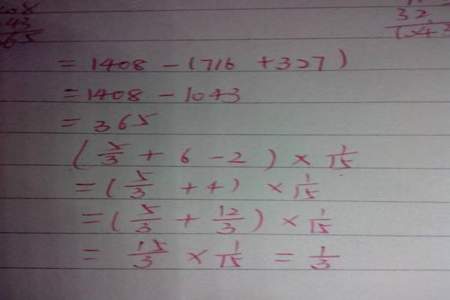 43
65
32
= 1408 - (716 + 327)
= 1408 - 1043
= 365
(5/3 + 6 - 2) × 1/15
= (5/3 + 4) × 1/15
= (5/3 + 12/3) × 1/15
= 15/3 × 1/15 = 1/3